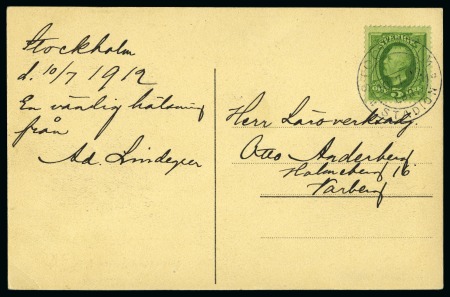 Stockholm
d. 10/7 1912
En vänlig hälsning
från
Ad. Lindegren
SVERIGE
5
STADION
Herr Läroverksadj.
Otto Anderberg
Holmeberg 16
Varberg